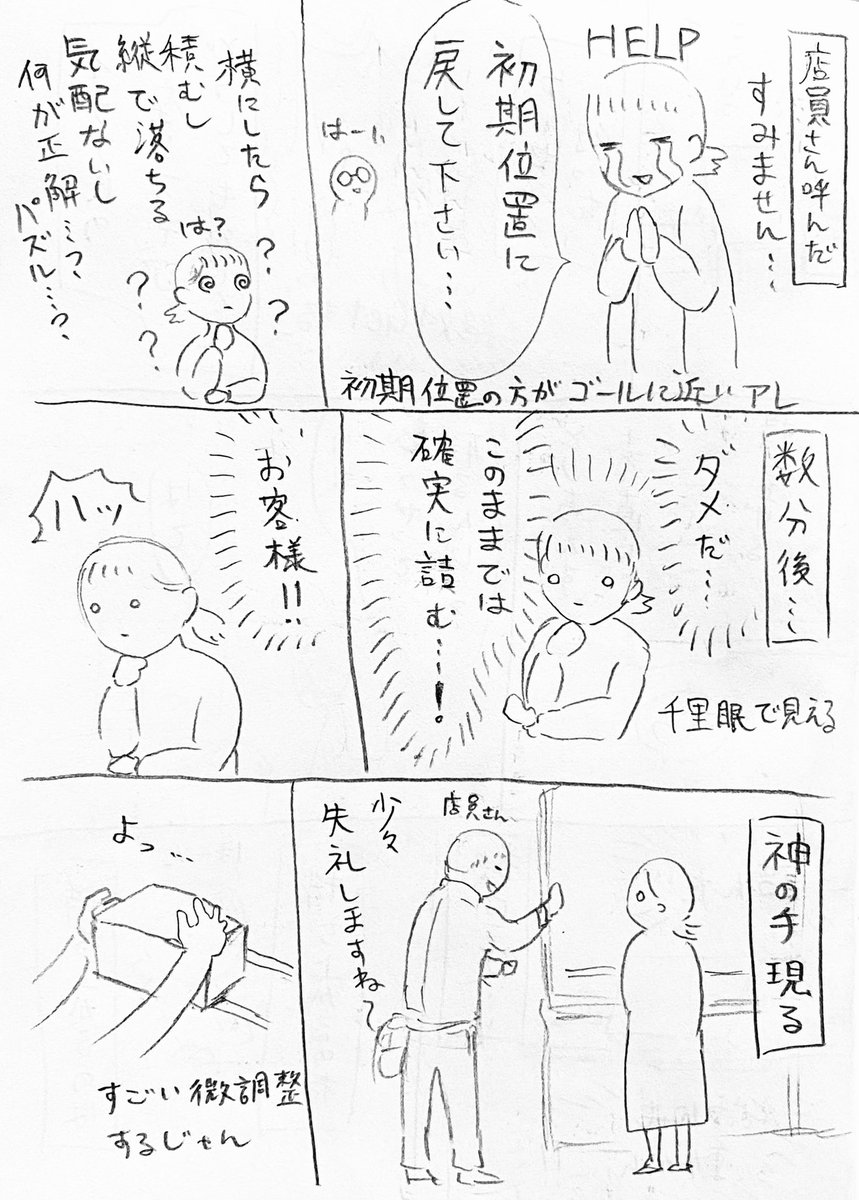 店員さん呼んだ
すみません…
HELP
初期位置に
戻して下さい…
はーい
初期位置の方がゴールに近いアレ
横にしたら
積むし
縦で落ちる
気配ないし
何が正解…?
パズル…?
は?
?
?
?
?
?
数分後…
ダメだ…
このままでは
確実に詰む…!
千里眼で見える
お客様!!
ハッ
神の手現る
店員さん
少々
失礼しますね〜
よっ…
すごい微調整
するじゃん